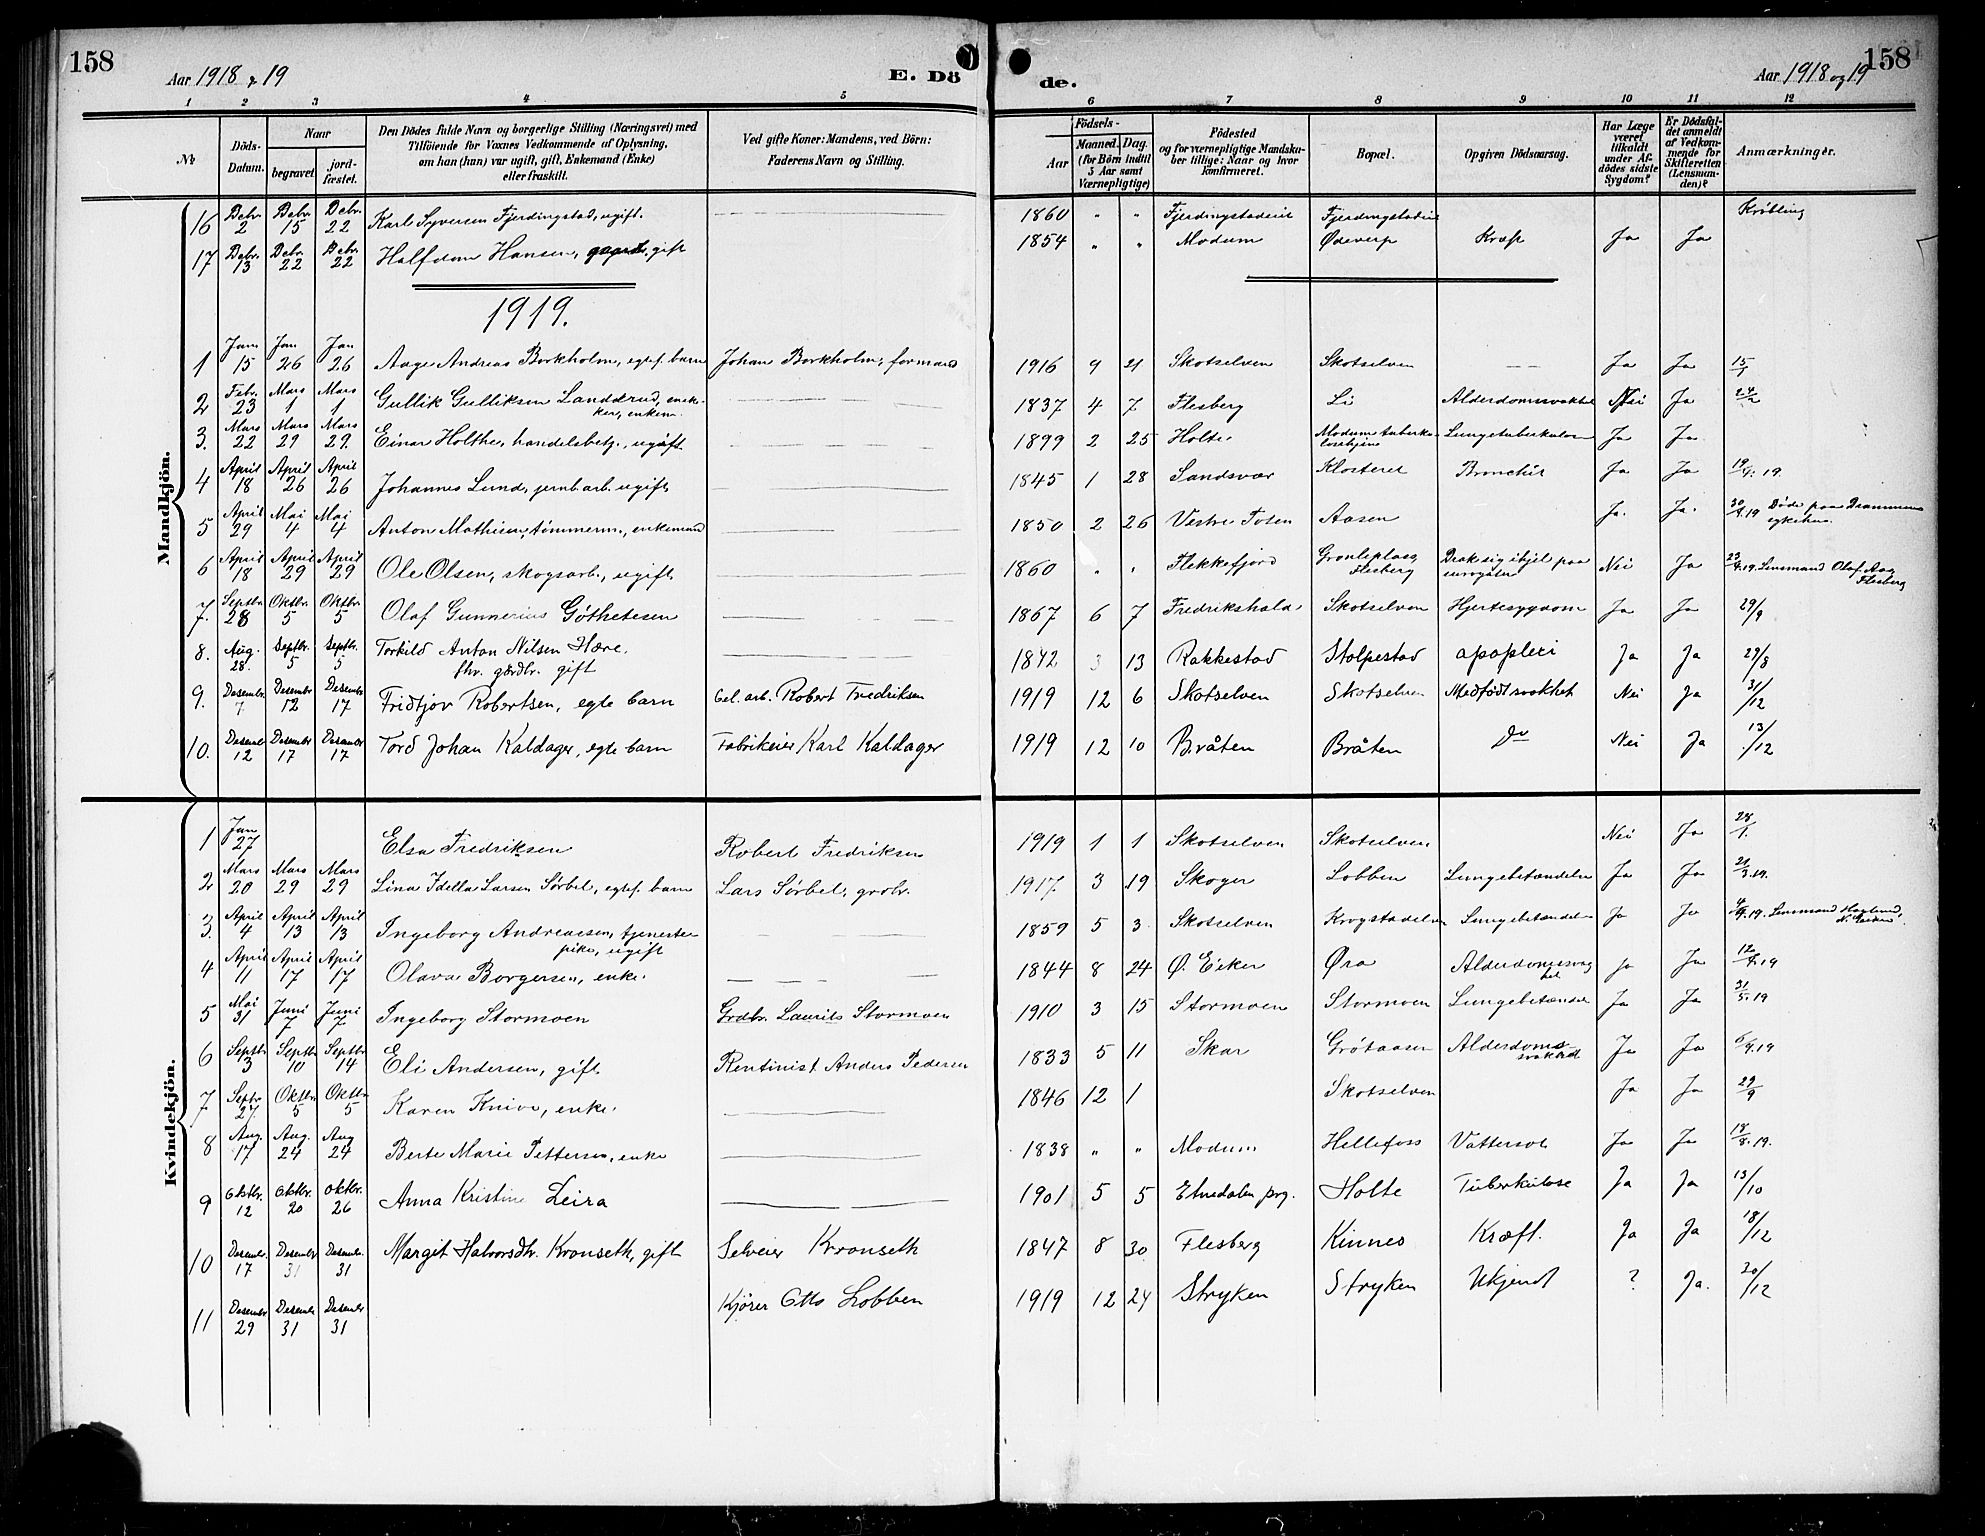 158
Aar 1918 & 19
E. Dö
de.
Aar 1918 og 19
158
1 2 3 4 5 6 7 8 9 10 11 12
No
Döds-Datum.
Naar
begravet
jord-fæstet.
Den Dödes fulde Navn og borgerlige Stilling (Næringsvei) med
Tilföiende for Voxnes Vedkommende af Oplysning,
om han (hun) var ugift, gift, Enkemand (Enke)
eller fraskilt.
Ved gifte Koner: Mandens, ved Börn:
Faderens Navn og Stilling.
Födsels-
Aar
Maaned. Dag.
(for Börn indtil
3 Aar samt
Værnepligtige)
Födested
og for værnepligtige Mandska-
ber tillige: Naar og hvor
konfirmeret.
Bopæl.
Opgiven Dödsaarsag.
Har Læge
været
tilkaldt
under Af-
dödes sidste
Sygdom?
Er Dödsfal-
det anmeldt
af Vedkom-
mende for
Skifteretten
(Lensman-
den)?
Anmærkninger.
Mandkjön.
16 Debr. 2 Debr. 15 Debr. 22 Karl Syversen Fjerdingstad, ugift. 1860 " " Fjerdingstadeie Fjerdingstadeie
17 Debr. 13 Debr. 22 Debr. 22 Halfdan Hansen, gift 1854 " " Modum Ødeverp Kræft Ja Ja
1919.
1 Jan 15 Jan 26 Jan 26 Aage Andreas Borkholm, egtef. barn Johan Borkholm, formand 1916 9 21 Skotselven Skotselven Ja Ja 15/1
2 Febr. 23 Mars 1 Mars 1 Gullik Gulliksen Landerud, enkem. 1837 4 7 Flesberg Li Alderdomssvakhet Nei Ja 24/2
3. Mars 22 Mars 29 Mars 29. Einar Holthe, handelsbetj., ugift 1899 2 25 Holte Modum tuberkuloschjem Lungetuberkulose Ja Ja
4 April 18 April 26 April 26 Johannes Lund, jernb.arb. ugift 1845 1 28 Sandsvær Klosteret Bronchit Ja Ja 19/4. 19.
5 April 29 Mai 4 Mai 4 Anton Mathisen, tømmerm., enkemand 1850 2 26 Vestre Toten Aasen Ja. Ja. 30/4. 19 Døde paa Drammens sykehus.
6 April 18 April 29 April 29 Ole Olsen, skogsarb., ugift 1860 " " Flekkefjord Grønliplass Flesberg Drak sig ihjel paa surrogater Nei Ja 23/4. 19. Lensmand Olaf Aag Flesberg
7. Septbr. 28 Oktbr. 5 Oktbr. 5 Olaf Gunnerius Göthetesen 1867 6 7 Fredrikshald Skotselven Hjertesygdom Ja Ja 29/9
8. Aug. 28. Septbr. 5 Septbr. 5 Torkild Anton Nilsen Hære. fhv. gårdbr. gift 1842 3 13 Rakkestad Stolpestad apoplexi Ja Ja 29/8
9. Desembr. 7 Desembr 12 Desembr 17 Fridtjov Robertsen, egte barn Cel. arb. Robert Fredriksen 1919 12 6 Skotselven Skotselven Medfødt svakhet Nei Ja 31/12
10. Desembr 12 Desembr 17 Desember 17 Tord Johan Kaldager, egte barn Fabrikeier Karl Kaldager 1919 12 10 Bråten Bråten Do Nei Ja 13/12
Kvindekjön.
1 Jan 27 Elsa Fredriksen Robert Fredriksen 1919 1 1 Skotselven Skotselven Nei Ja 28/1.
2 Mars 20 Mars 29 Mars 29 Lina Idella Larsen Sørbel, egtef. barn Lars Sørbel, grobr. 1917. 3 19 Skoger Lobben Lungebetændelse Ja Ja 21/3. 19.
3. April 4 April 13 April 13 Ingeborg Andreassen, tjenestepike, ugift 1859 5 3 Skotselven Krogstadelven Lungebetændelse Ja Ja 4/4. 19. Lensmand
4 April 11 April 17 April 17 Olava Borgersen, enke. 1844 8 24 Ø. Eiker Øra Alderdomssvaghet Ja Ja 12/4. 19
5 Mai 31 Juni 7 Juni 7 Ingeborg Stormoen Grdbr. Laurits Stormoen 1910 3 15 Stormoen Stormoen Lungebetændelse Ja Ja 31/5. 19
6 Septbr 3 Septbr 10 Septbr 14 Eli Andersen, gift Rentinist Anders Pedersen 1833 5 11 Skar Grøtaasen Alderdomssvakhet Ja Ja 5/9. 19
7 Septbr. 27. Oktbr 5 Oktbr 5 Karen Knive, enke. 1846 12 1 Skotselven Ja Ja 29/9
8 Aug. 17 Aug. 24 Aug 24 Berte Marie Pettersen, enke 1838 " " Modum Hellefoss Vattersot Ja Ja 18/8. 19.
9 Oktbr. 12 Oktbr. 20 Oktbr. 26 Anna Kristine Leira 1901 5 5 Etnedalen prg. Holte Tuberkulose Ja Ja 13/10
10 Desembr. 17 Desembr 31 Desembr. 31 Margit Halvorsdtr. Kronseth, gift Selveier Kronseth 1847 8 30 Flesberg Kinnes Kræft. Ja Ja 18/12
11 Desembr 29 Desembr 31 Desembr 31 Kjører Otto Lobben 1919 12 24 Stryken Stryken Ukjendt ? Ja. 30/12